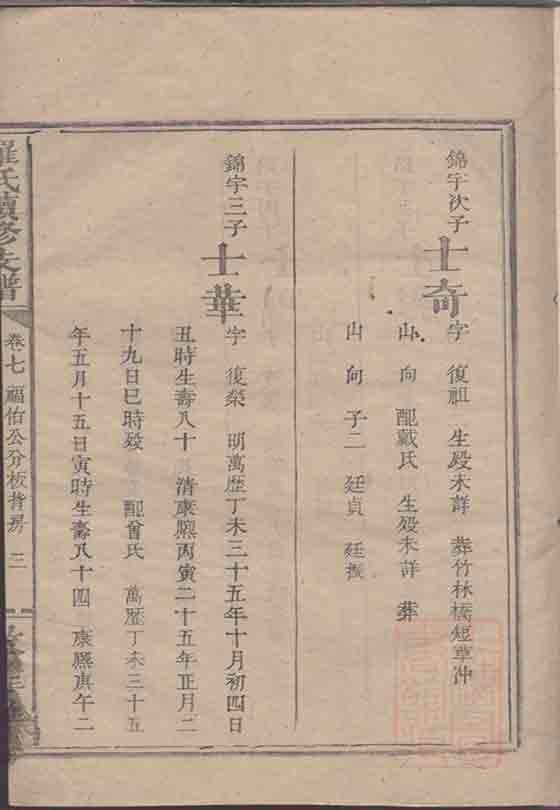 錦宇次子 士奇 字 復祖 生殁未詳 葬竹林橋短草冲
山 向 配戴氏 生殁未詳 葬
山 向 子二 廷貞 廷振
錦宇三子 士華 字 復榮 明萬歷丁未三十五年十月初四日
丑時生壽八十 清康熙丙寅二十五年正月二
十九日巳時殁 配曾氏 萬歷丁未三十五
年五月十五日寅時生壽八十四 康熙庚午二
羅氏續修支譜 卷七 福佑公分板背房 三